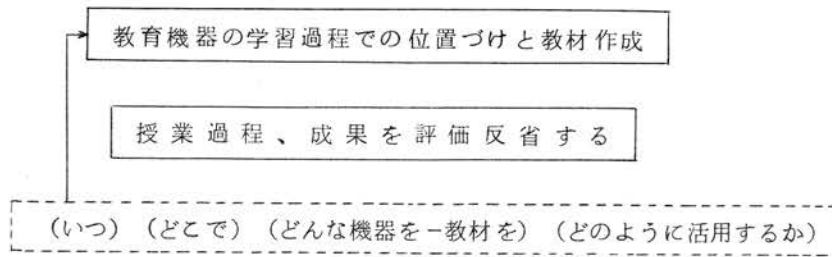 教育機器の学習過程での位置づけと教材作成
授業過程、成果を評価反省する
(いつ)(どこで)(どんな機器を-教材を)(どのように活用するか)